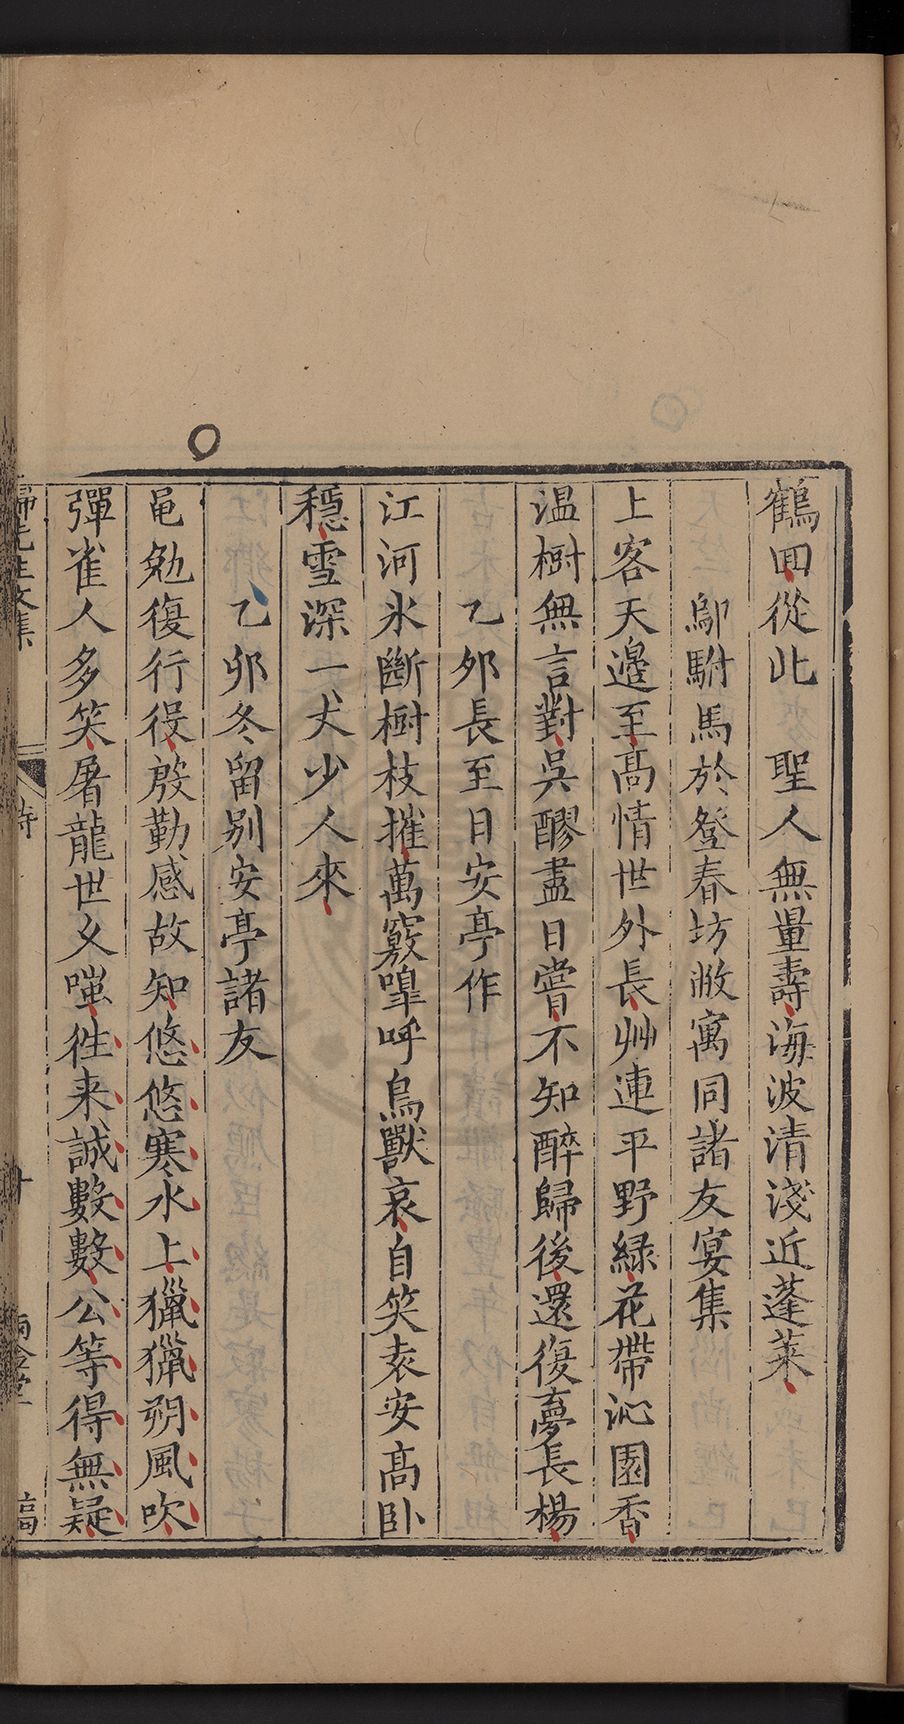 鶴回從此　聖人無量壽海波清淺近蓬萊
鄔駙馬於登春坊敝寓同諸友宴集
上客天邊至髙情世外長艸連平野緑花帶沁園香
温樹無言對吳醪盡日嘗不知醉歸後還復夢長楊
乙夘長至日安亭作
江河氷斷樹枝摧萬竅嘷呼鳥獸哀自笑袁安髙卧
穩雪深一犬少人來
乙夘冬留别安亭諸友
黽勉復行役殷勤感故知悠悠寒水上獵獵朔風吹
彈雀人多笑屠龍世久嗤徃来誠數數公等得無疑
歸先生文集　詩　十